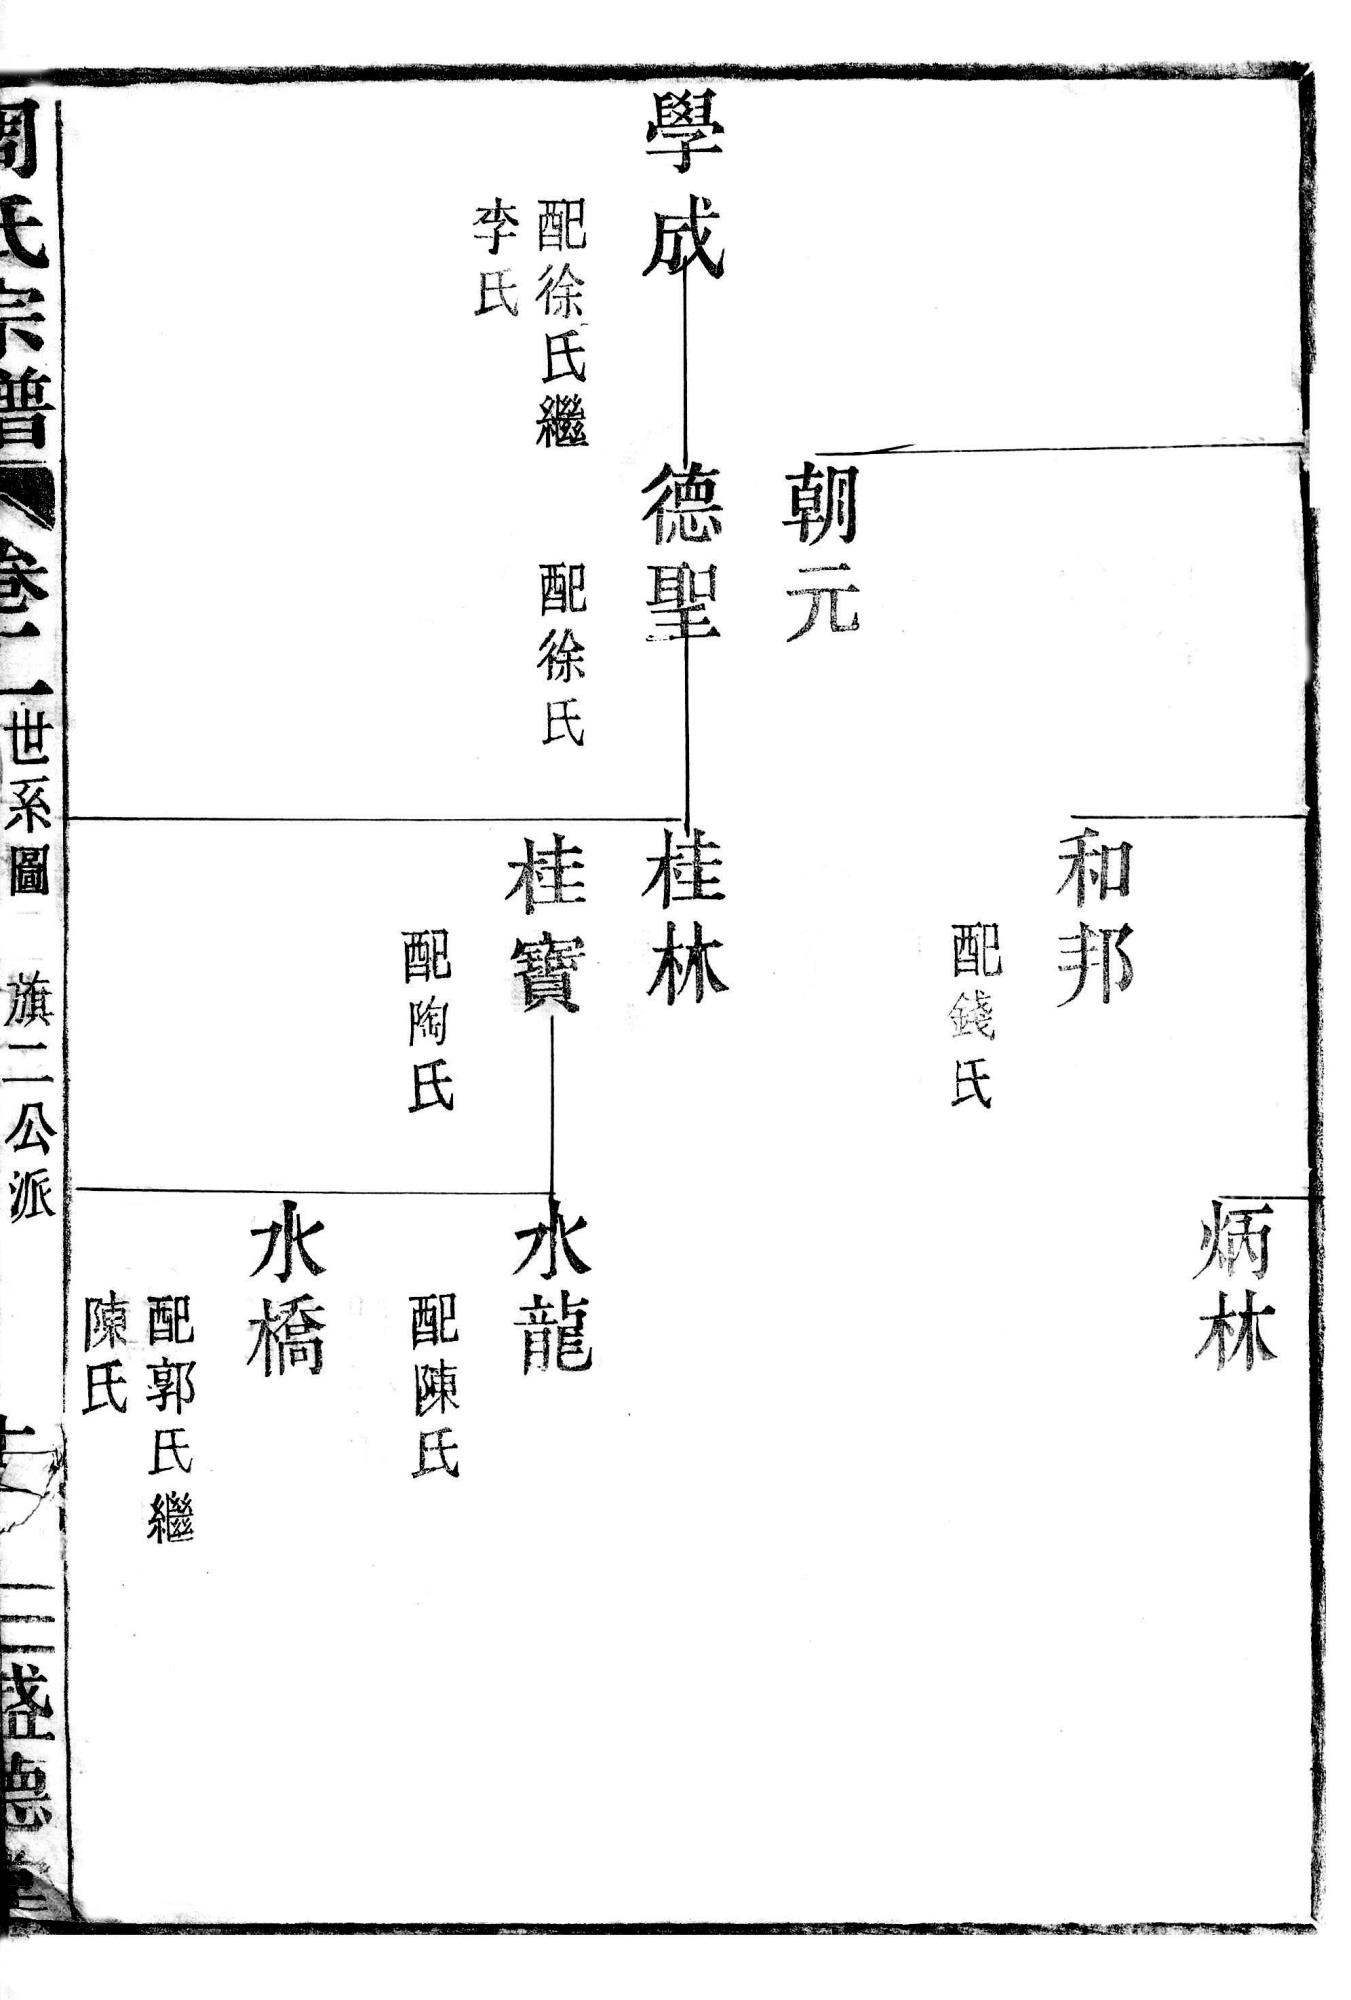 炳林
和邦
配錢氏
朝元
學成
配徐氏繼
李氏
德聖
配徐氏
桂林
桂寶
配陶氏
水龍
配陳氏
水橋
配郭氏繼
陳氏
周氏宗譜
卷二
世系圖
旗二公派
盛德堂